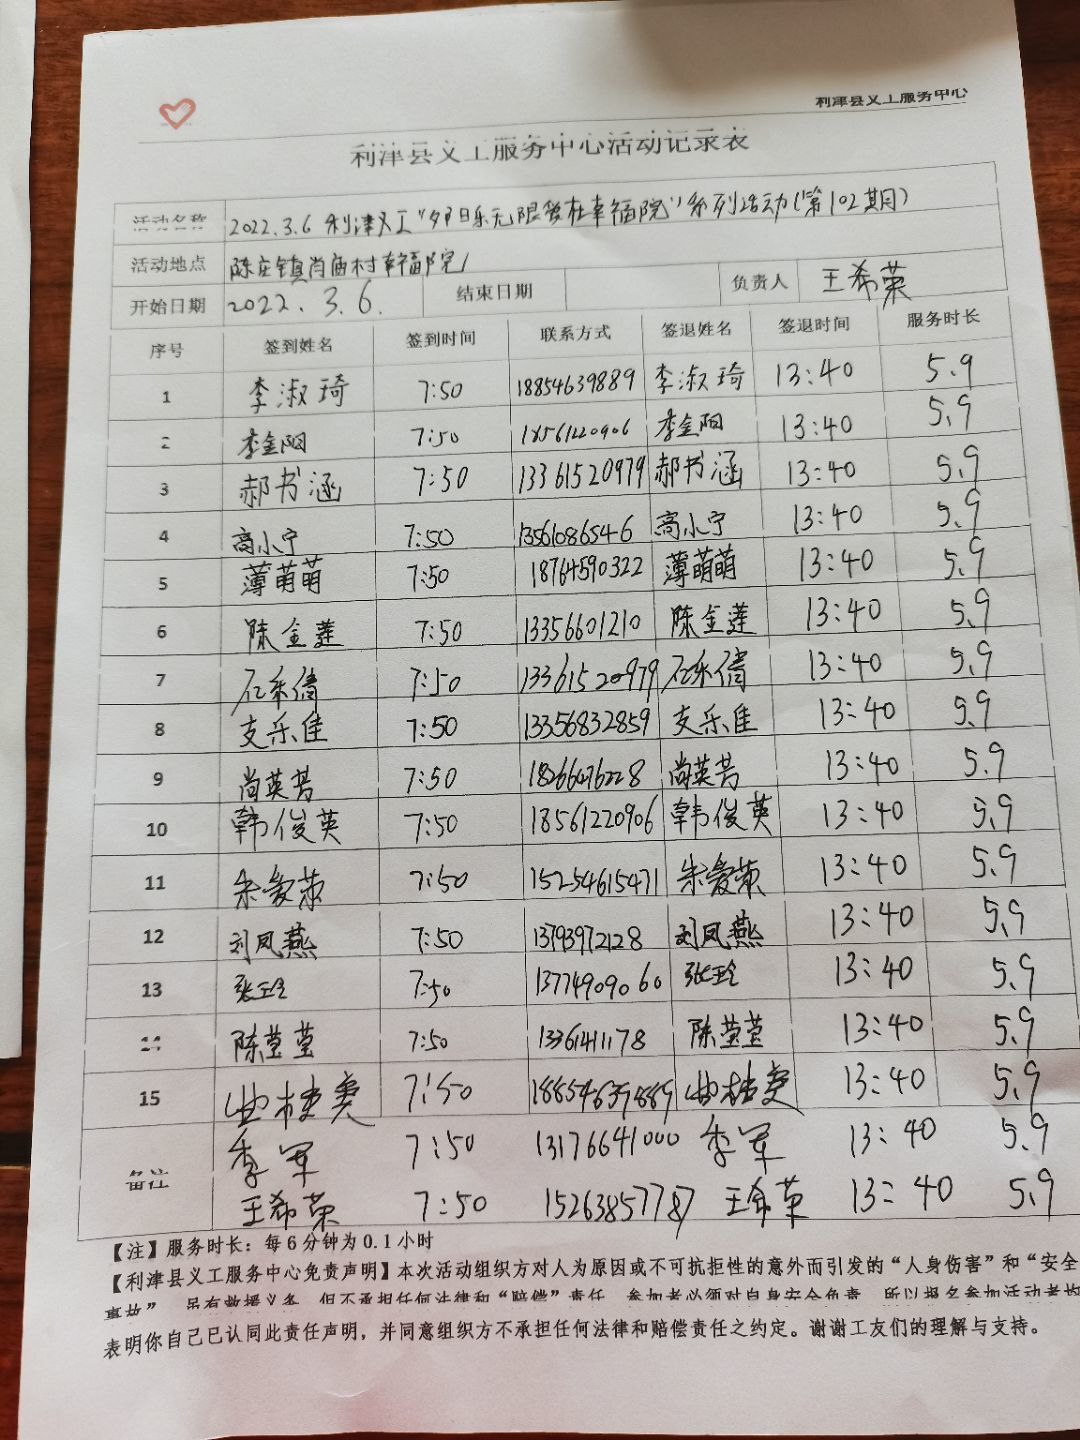 利津县义工服务中心
利津县义工服务中心活动记录表
活动名称 2022.3.6 利津义工"夕阳乐无限爱在幸福院"系列活动(第102期)
活动地点 陈庄镇肖庙村幸福院
开始日期 2022.3.6. 结束日期 负责人 王希荣
序号 签到姓名 签到时间 联系方式 签退姓名 签退时间 服务时长
1 李淑琦 7:50 18854639889 李淑琦 13:40 5.9
2 李金阳 7:50 18561220906 李金阳 13:40 5.9
3 郝书涵 7:50 13361520979 郝书涵 13:40 5.9
4 高小宁 7:50 13561086546 高小宁 13:40 5.9
5 薄萌萌 7:50 18764590322 薄萌萌 13:40 5.9
6 陈金莲 7:50 13356601210 陈金莲 13:40 5.9
7 石乐倩 7:50 13361520979 石乐倩 13:40 5.9
8 支乐佳 7:50 13356832859 支乐佳 13:40 5.9
9 尚英芳 7:50 18266476228 尚英芳 13:40 5.9
10 韩俊英 7:50 18561220906 韩俊英 13:40 5.9
11 朱爱荣 7:50 15254615471 朱爱荣 13:40 5.9
12 刘凤燕 7:50 13793972128 刘凤燕 13:40 5.9
13 张玉玲 7:50 13774909060 张玉玲 13:40 5.9
14 陈莹莹 7:50 13361411178 陈莹莹 13:40 5.9
15 曲桂爱 7:50 18854639889 曲桂爱 13:40 5.9
备注 李军 7:50 13176641000 李军 13:40 5.9
王希荣 7:50 15263857787 王希荣 13:40 5.9
【注】服务时长：每6分钟为0.1小时
【利津县义工服务中心免责声明】本次活动组织方对人为原因或不可抗拒性的意外而引发的“人身伤害”和“安全
事故”，另有救援义务，但不承担任何法律和“赔偿”责任，参加者必须对自身安全负责，所以报名参加活动者均
表明你自己已认同此责任声明，并同意组织方不承担任何法律和赔偿责任之约定。谢谢工友们的理解与支持。